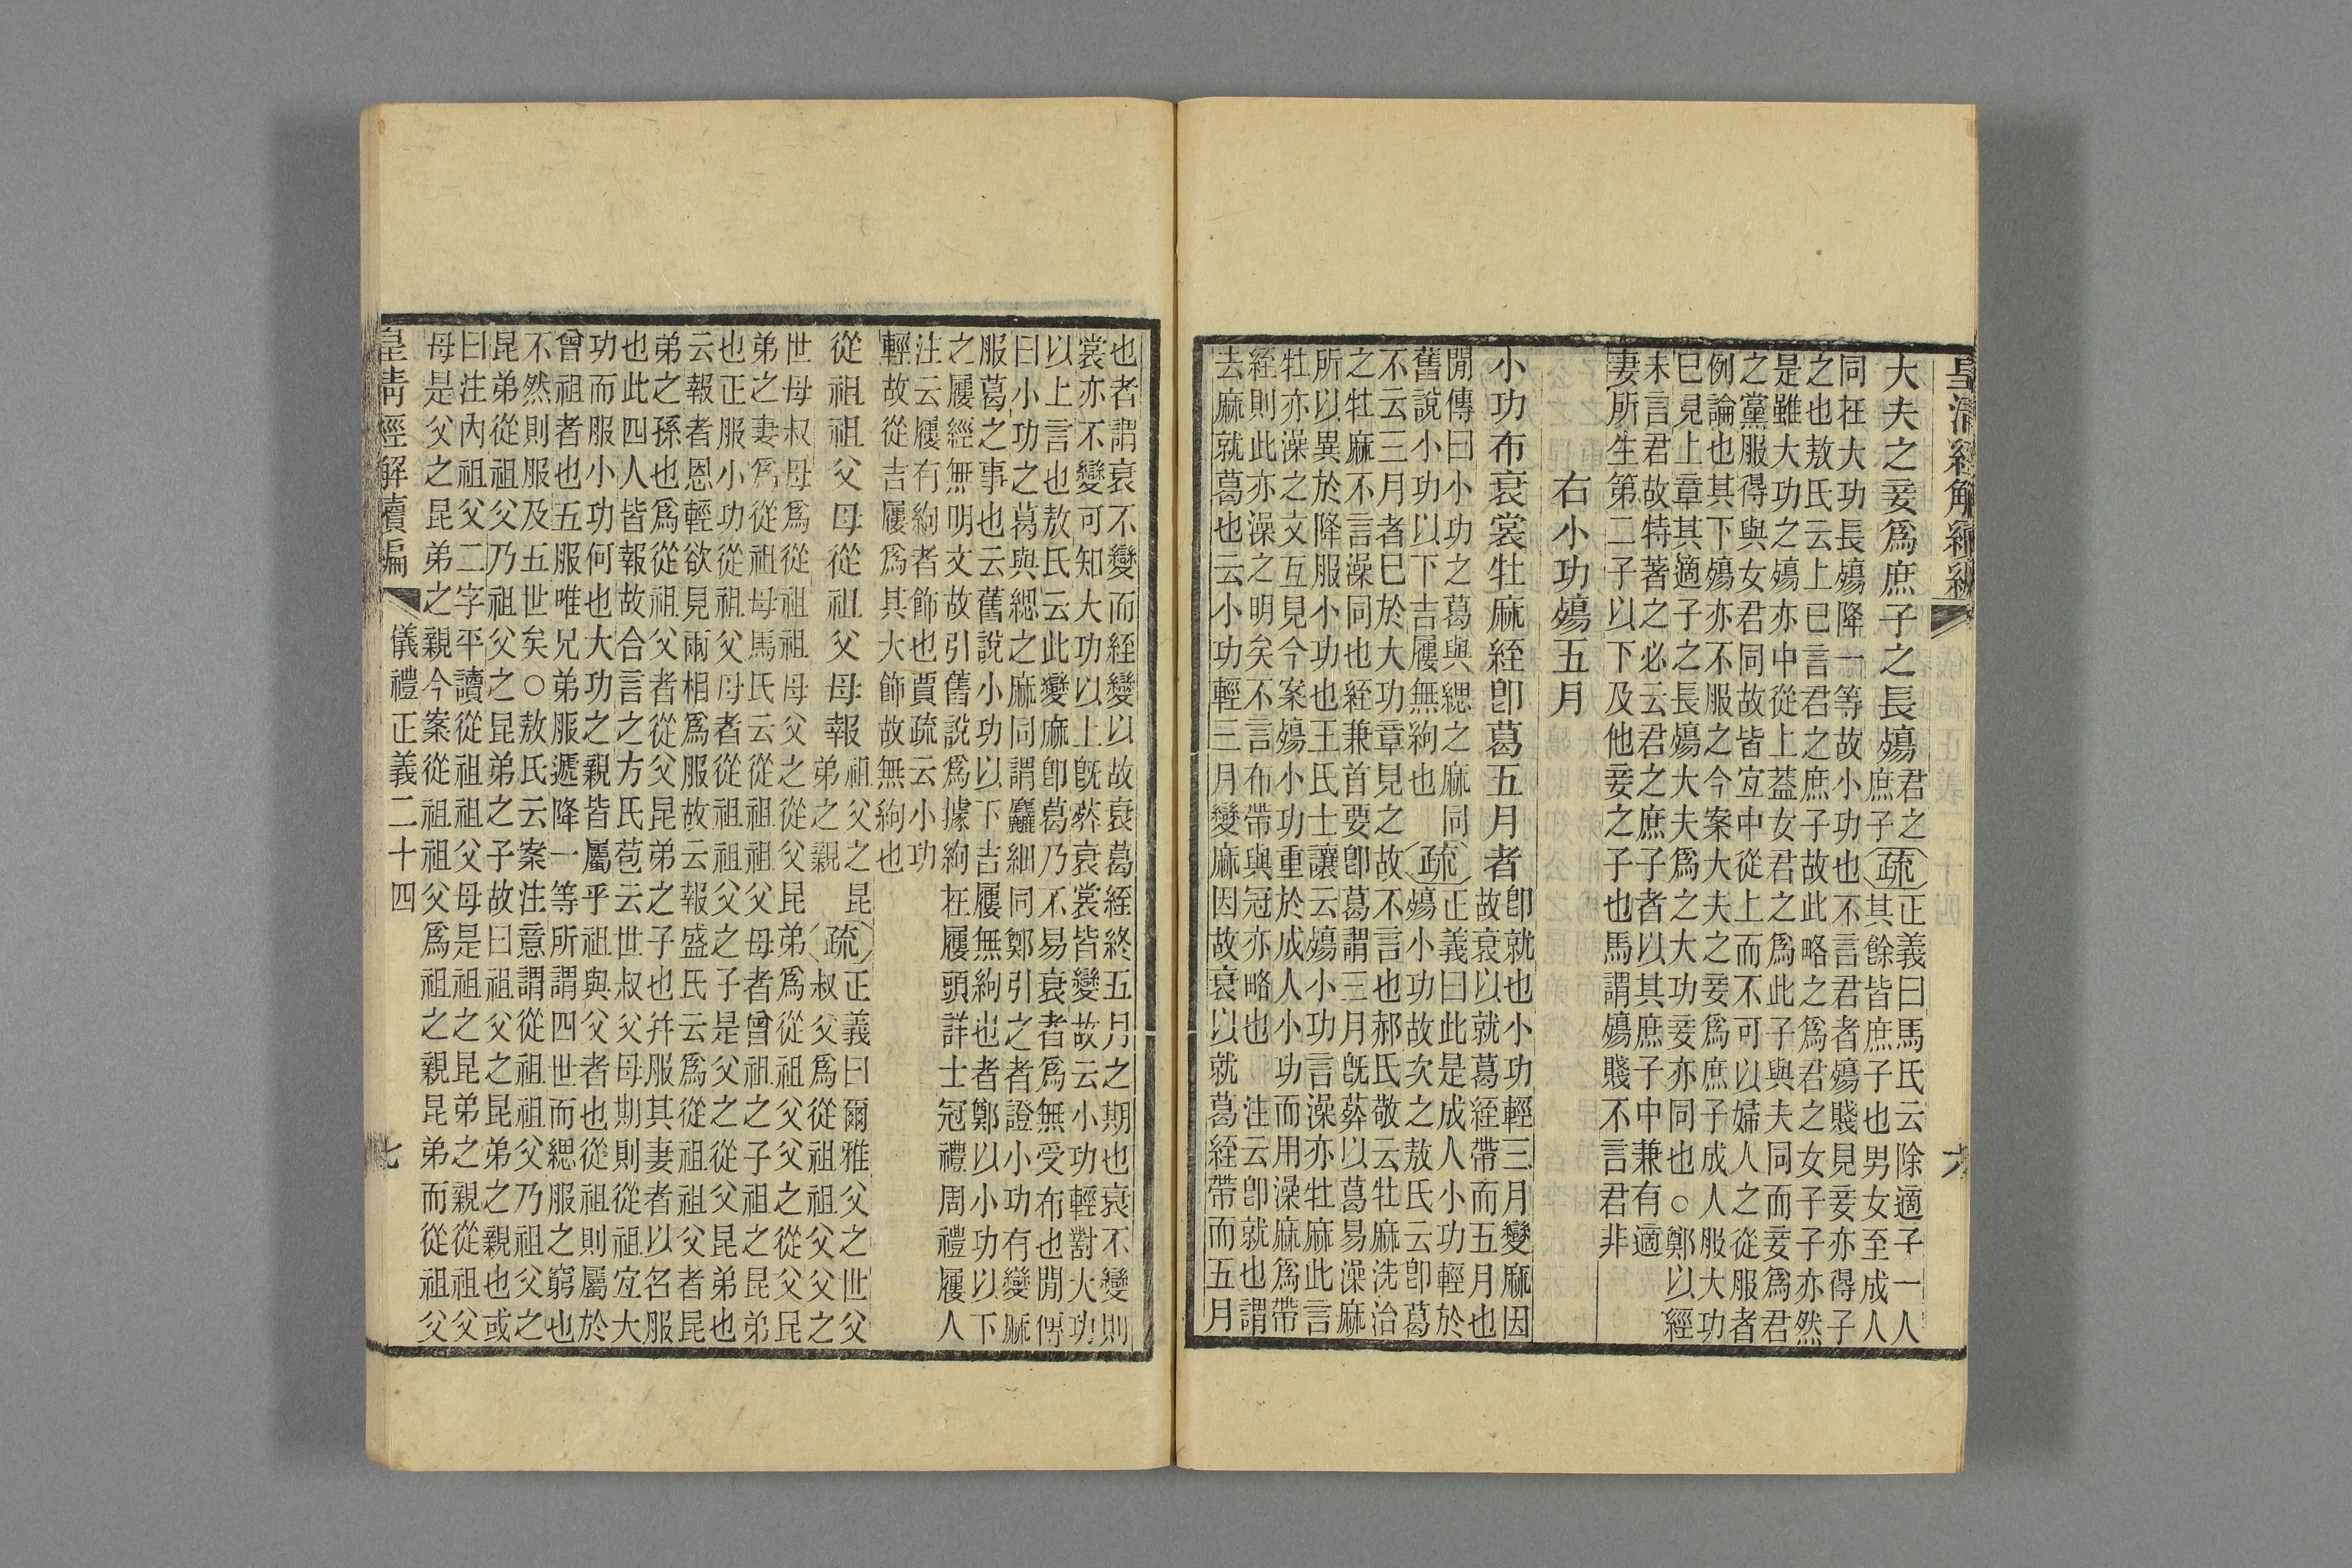 皇清經解續編
六
大夫之妾爲庶子之長殤君之庶子疏正義曰馬氏云除適子一人
其餘皆庶子也男女至成人
同在大功長殤降一等故小功也不言君者殤賤見妾亦得子
之也敖氏云上已言君之庶子故此略之爲君之女子子亦然
是雖大功之殤亦中從上蓋女君之爲此子與夫同而妾爲君
之黨服得與女君同故皆宜中從上而不可以婦人之從服者
例論也其下殤亦不服之今案大夫之妾爲庶子成人服大功
已見上章其適子之長殤大夫爲之大功妾亦同也○鄭以經
未言君故特著之必云君之庶子者以其庶子中兼有適
妻所生第二子以下及他妾之子也馬謂殤賤不言君非
右小功殤五月
小功布衰裳牡麻絰卽葛五月者卽就也小功輕三月變麻因
故衰以就葛絰帶而五月也
閒傳曰小功之葛與緦之麻同疏正義曰此是成人小功輕於
舊說小功以下吉屨無絇也殤小功故次之敖氏云卽葛
不云三月者已於大功章見之故不言也郝氏敬云牡麻洗治
之牡麻不言澡同也絰兼首要卽葛謂三月旣葬以葛易澡麻
所以異於降服小功也王氏士讓云殤小功言澡亦牡麻此言
牡亦澡之文互見今案殤小功重於成人小功而用澡麻爲帶
絰則此亦澡之明矣不言布帶與冠亦略也注云卽就也謂
去麻就葛也云小功輕三月變麻因故衰以就葛絰帶而五月
也者謂衰不變而絰變以故衰葛絰終五月之期也衰不變則
裳亦不變可知大功以上旣葬衰裳皆變故云小功輕對大功
以上言也敖氏云此變麻卽葛乃不易衰者爲無受布也閒傳
曰小功之葛與緦之麻同謂麤細同鄭引之者證小功有變麻
服葛之事也云舊說小功以下吉屨無絇也者鄭以小功以下
之屨經無明文故引舊說爲據絇在屨頭詳士冠禮周禮屨人
注云屨有絇者飾也賈疏云小功
輕故從吉屨爲其大飾故無絇也
從祖祖父母從祖父母報祖父之昆
弟之親疏正義曰爾雅父之世父
叔父爲從祖祖父父之
世母叔母爲從祖祖母父之從父昆弟爲從祖父父之從父昆
弟之妻爲從祖母馬氏云從祖祖父母者曾祖之子祖之昆弟
也正服小功從祖父母者從祖祖父之子是父之從父昆弟也
云報者恩輕欲見兩相爲服故云報盛氏云爲從祖祖父者昆
弟之孫也爲從祖父者從父昆弟之子也幷服其妻者以名服
也此四人皆報故合言之方氏苞云世叔父母期則從祖宜大
功而服小功何也大功之親皆屬乎祖與父者也從祖則屬於
曾祖者也五服唯兄弟服遞降一等所謂四世而緦服之窮也
不然則服及五世矣○敖氏云案注意謂從祖祖父乃祖父之
昆弟從祖父乃祖父之昆弟之子故曰祖父之昆弟之親也或
曰注內祖父二字平讀從祖祖父母是祖之昆弟之親從祖父
母是父之昆弟之親今案從祖祖父爲祖之親昆弟而從祖父
皇清經解續編
儀禮正義二十四
七